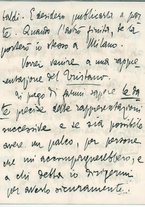 taldi. E desidero pubblicarlo a par
te. Quando l'avrò finita, te la
porterò io stesso a Milano.
Vorrei venire a una rappre
sentazione del Tristano.
Ti prego di farmi sapere le da
te precise delle rappresentazioni
successive e se sia possibile
avere un palco, per persone
che mi accompagnerebbero; e
a chi debba io rivolgermi
per averlo sicuramente.